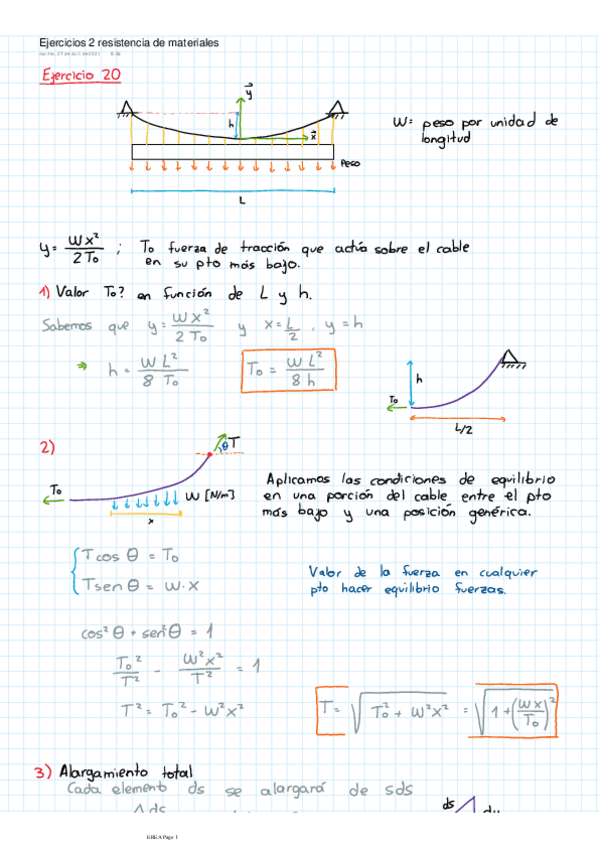 Ejercicios 2 resistencia de materiales
Ejercicio 20
y
h
x
W= peso por unidad de
longitud
Peso
L
y = Wx²/2To ; To fuerza de tracción que actúa sobre el cable
en su pto más bajo.
1) Valor To? en función de L y h.
Sabemos que y = Wx²/2To y x = L/2 , y = h
⇒ h = WL²/8To To = WL²/8h
h
To
L/2
2)
θ T
To
W [N/m]
x
Aplicamos las condiciones de equilibrio
en una porción del cable entre el pto
más bajo y una posición genérica.
T cos θ = To
T sen θ = w·x
Valor de la fuerza en cualquier
pto hacer equilibrio fuerzas.
cos²θ + sen²θ = 1
To²/T² - W²x²/T² = 1
T² = To² - W²x²
T = √(To² + W²x²) = √(1+(Wx/To)²)
3) Alargamiento total
Cada elemento ds se alargará de sds
ds